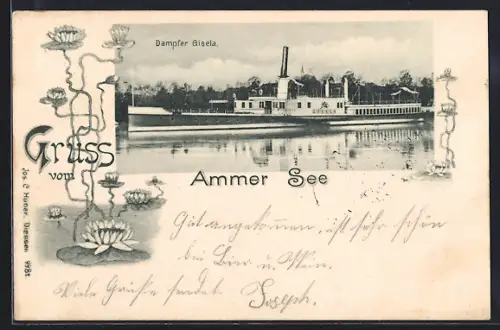 Dampfer Gisela.
GISELA
Gruss
vom
Ammer See
Gut angekommen, ist sehr schön
bei Bier u. Wein.
Viele Grüße sendet Joseph.
Jos. C. Huber, Diessen